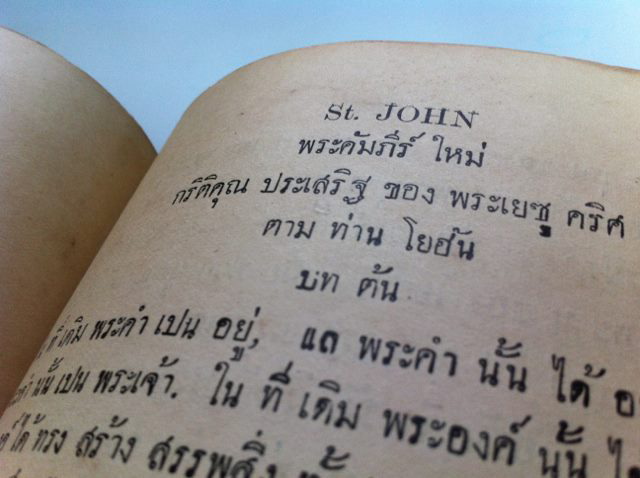 St. JOHN
พระคัมภีร์ ใหม่
กริติคุณ ประเสริฐ ของ พระเยซู คริศ
ตาม ท่าน โยฮัน
บท ต้น
ที่ เดิม พระคำ เปน อยู่, แล พระคำ นั้น ได้ อ
นั้น เปน พระเจ้า. ใน ที่ เดิม พระองค์ นั้น ไ
ได้ ทรง สร้าง สรรพสิ่ง ทั้